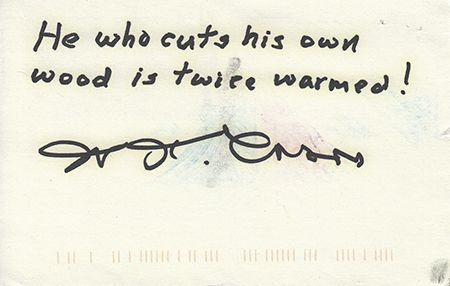 He who cuts his own
wood is twice warmed!